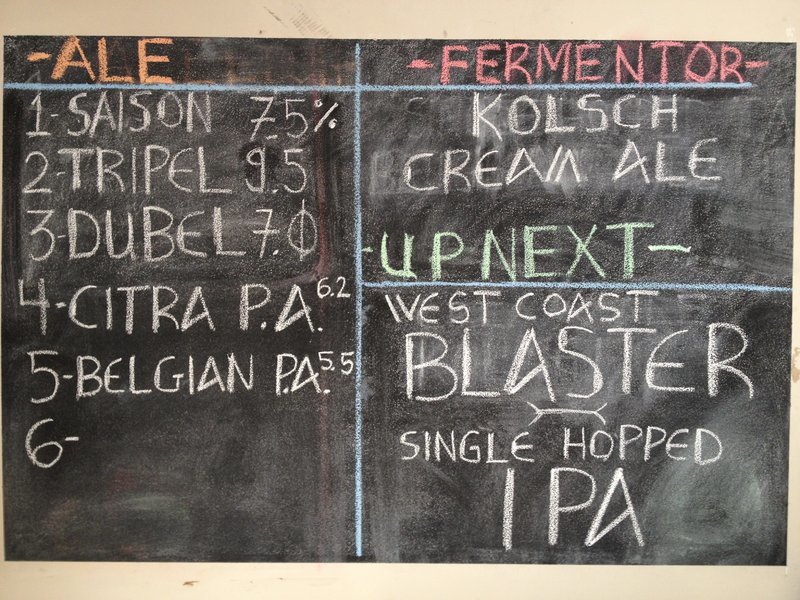 -ALE
1-SAISON 7.5%
2-TRIPEL 9.5
3-DUBEL 7.0
4-CITRA P.A. 6.2
5-BELGIAN P.A. 5.5
6-
-FERMENTOR-
KOLSCH
CREAM ALE
-UP NEXT-
WEST COAST
BLASTER
SINGLE HOPPED
IPA